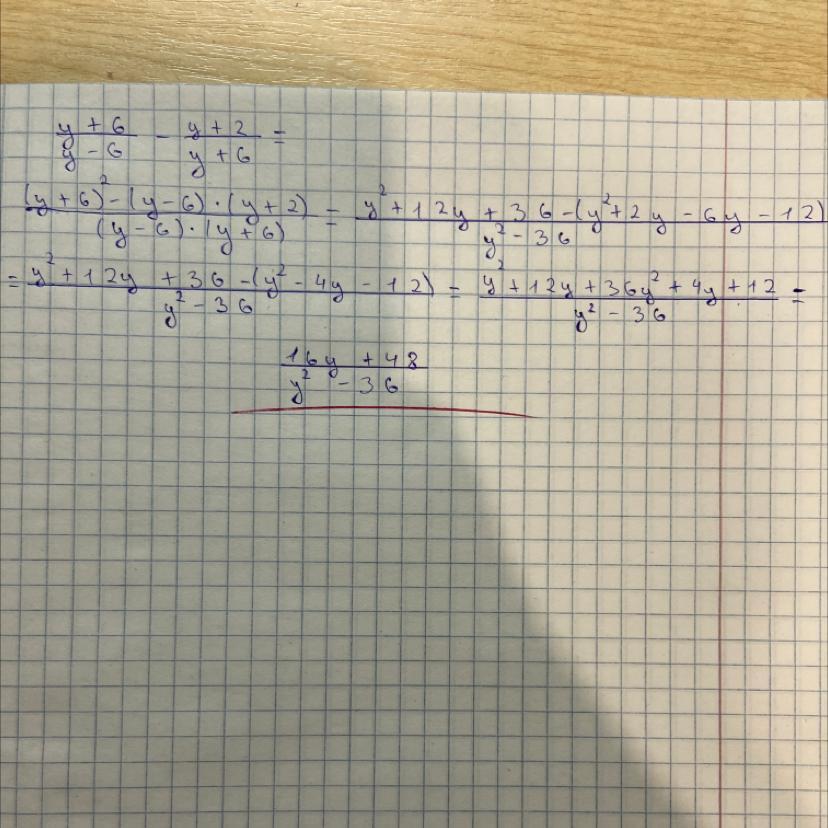 (y + 6)/(y - 6) - (y + 2)/(y + 6) =
((y + 6)² - (y - 6) · (y + 2))/((y - 6) · (y + 6)) = (y² + 12y + 36 - (y² + 2y - 6y - 12))/(y² - 36)
= (y² + 12y + 36 - (y² - 4y - 12))/(y² - 36) = (y² + 12y + 36y² + 4y + 12)/(y² - 36) =
(16y + 48)/(y² - 36)